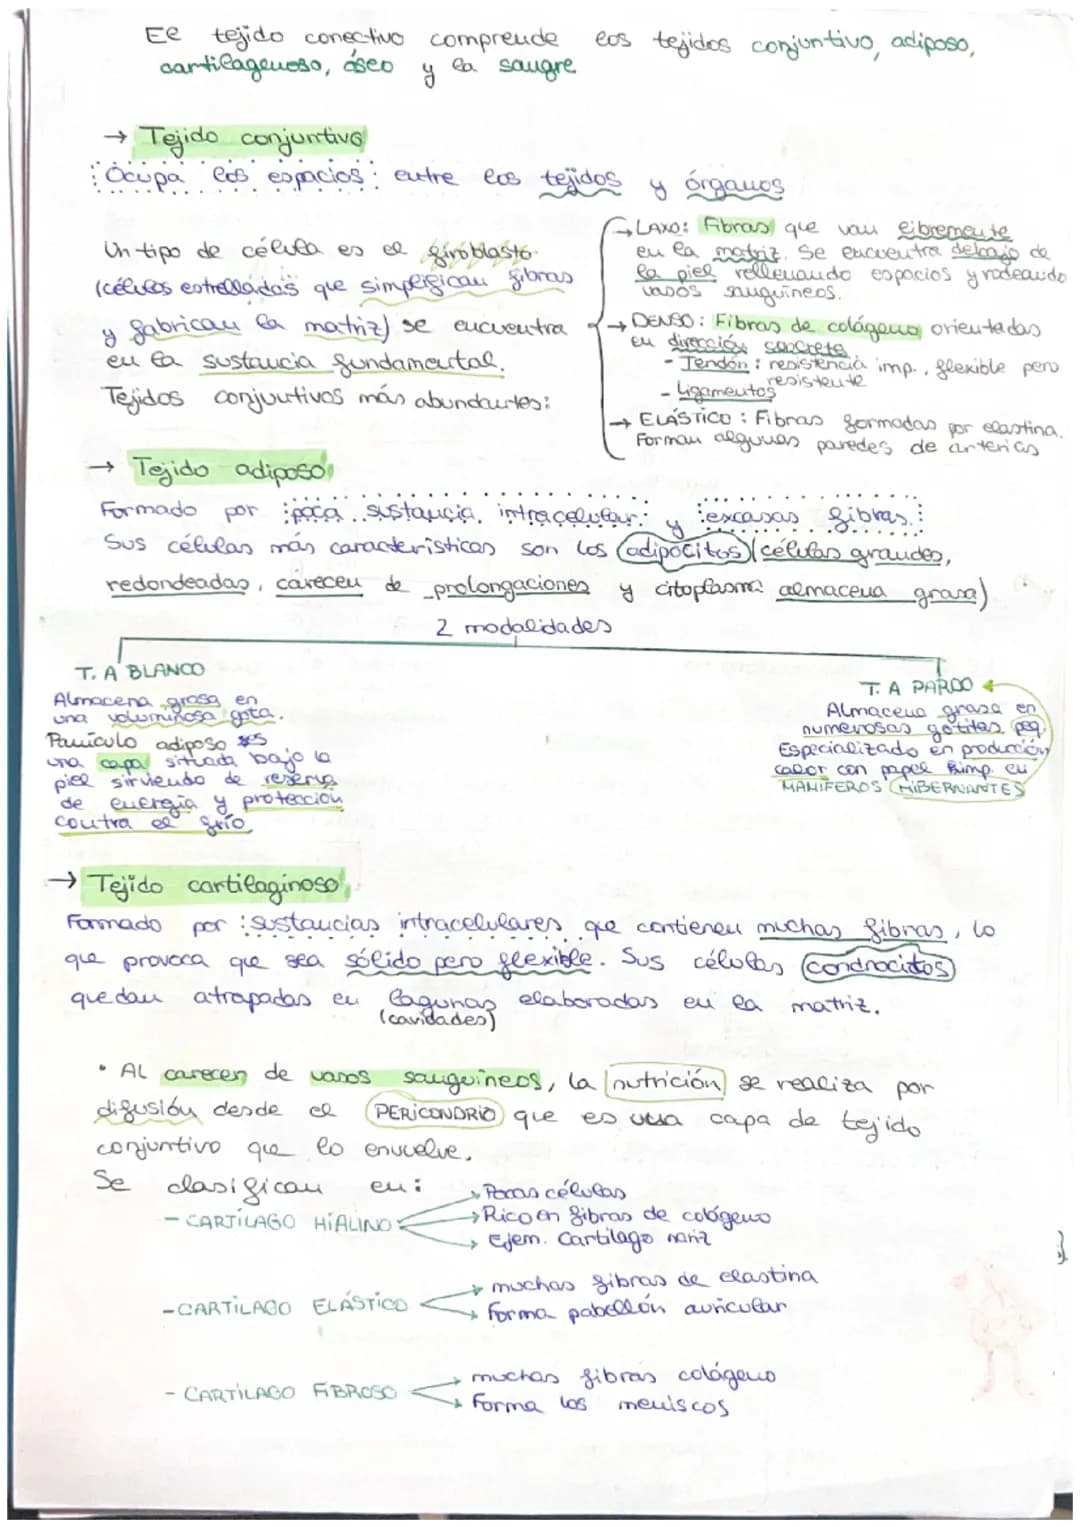 El tejido conectivo comprende los tejidos conjuntivo, adiposo,
cartilagenoso, óseo y la sangre
→ Tejido conjuntivo
Ocupa los espacios entre los tejidos y órganos
Un tipo de célula es el firoblasto
(células estrelladas que simplifican fibras
y fabrican la matriz) se encuentra
en la sustancia fundamental.
Tejidos conjuntivos más abundantes:
→ LAXO: Fibras que van libremente
en la matriz. Se encuentra debajo de
la piel rellenando espacios y rodeando
vasos sanguíneos.
→ DENSO: Fibras de colágeno orientadas
en dirección
- Tendón: resistencia imp., flexible pero
resistente
- Ligamentos
→ ELÁSTICO: Fibras formadas por elastina.
Forman algunas paredes de arterias
→ Tejido adiposo
Formado por poca sustancia intracelular y excasas fibras.
Sus células más características son los adipocitos (células grandes,
redondeadas, carecen de prolongaciones y citoplasma almacena grasa)
2 modalidades
T. A BLANCO
Almacena grasa en
una voluminosa gota.
Panículo adiposo es
una capa situada bajo la
piel sirviendo de reserva
de energía y protección
contra el frío
T. A PARDO
Almacena grasa en
numerosas gotitas peq.
Especializado en producción
calor con papel imp. en
MAMÍFEROS HIBERNANTES
→ Tejido cartilaginoso
Formado por sustancias intracelulares que contienen muchas fibras, lo
que provoca que sea sólido pero flexible. Sus células condrocitos
quedan atrapadas en lagunas elaboradas en la matriz.
(cavidades)
• Al carecer de vasos sanguíneos, la nutrición se realiza por
difusión desde el PERICONDRIO que es una capa de tejido
conjuntivo que lo envuelve.
Se clasifican en:
- CARTÍLAGO HIALINO
→ Pocas células
→ Rico en fibras de colágeno
→ Ejem. Cartílago nariz
- CARTÍLAGO ELÁSTICO
→ muchas fibras de elastina
→ Forma pabellón auricular
- CARTÍLAGO FIBROSO
→ muchas fibras colágeno
→ Forma los meniscos